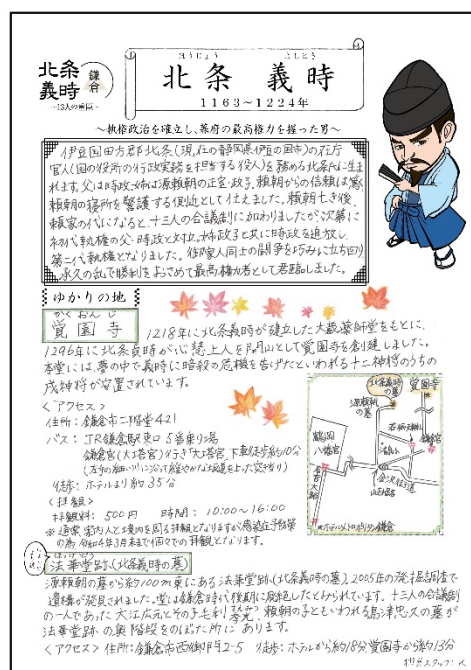 北条義時
鎌倉
～13人の重臣～
ほうじょう よしとき
北条 義時
1163～1224年
～執権政治を確立し、幕府の最高権力を握った男～
伊豆国田方郡北条(現在の静岡県伊豆の国市)の在庁
官人(国の役所の行政実務を担当する役人)を務める北条氏に生ま
れます。父は時政、姉は源頼朝の正室・政子、頼朝からの信頼は篤く
頼朝の寝所を警護する側近として仕えました。頼朝亡き後、
頼家の代になると、十三人の合議制に加わりましたが、次第に
初代執権の父・時政と対立。姉政子と共に時政を追放し、
第二代執権となりました。御家人同士の闘争を巧みに立ち回り
承久の乱で勝利をおさめて最高権力者として君臨しました。
ゆかりの地
かくおんじ
覚園寺
1218年に北条義時が建立した大蔵薬師堂をもとに、
1296年に北条貞時が心慧上人を開山として覚園寺を創建しました。
本堂には、夢の中で義時に暗殺の危機を告げたといわれる十二神将のうちの
戌神将が安置されています。
＜アクセス＞
住所：鎌倉市二階堂421
バス：JR鎌倉駅東口5番乗り場
鎌倉宮(大塔宮)行き「大塔宮」下車徒歩約10分
(左手の細い川に沿って緩やかな坂道を上った突き当り)
徒歩：ホテルより約35分
＜拝観＞
拝観料：500円 時間：10:00～16:00
※通常、案内人と境内を周る拝観となりますが感染症予防策
の為、令和4年3月末まで1回での拝観となります。
北条義時の墓
覚園寺
源頼朝の墓
鶴岡八幡宮
鎌倉宮
若宮大路
金沢街道
ホテルメトロポリタン鎌倉
法華堂跡(北条義時の墓)
源頼朝の墓から約100m東にある法華堂跡(北条義時の墓)。2005年の発掘調査で
遺構が発見されました。堂は鎌倉時代後期に廃絶したとかられています。十三人の合議制
の一人であった大江広元とその子毛利季光、頼朝の子ともいわれる島津忠久の墓が
法華堂跡の奥階段をのぼた所にあります。
＜アクセス＞ 住所：鎌倉市西御門2-5 徒歩：ホテルから約18分 覚園寺から約13分